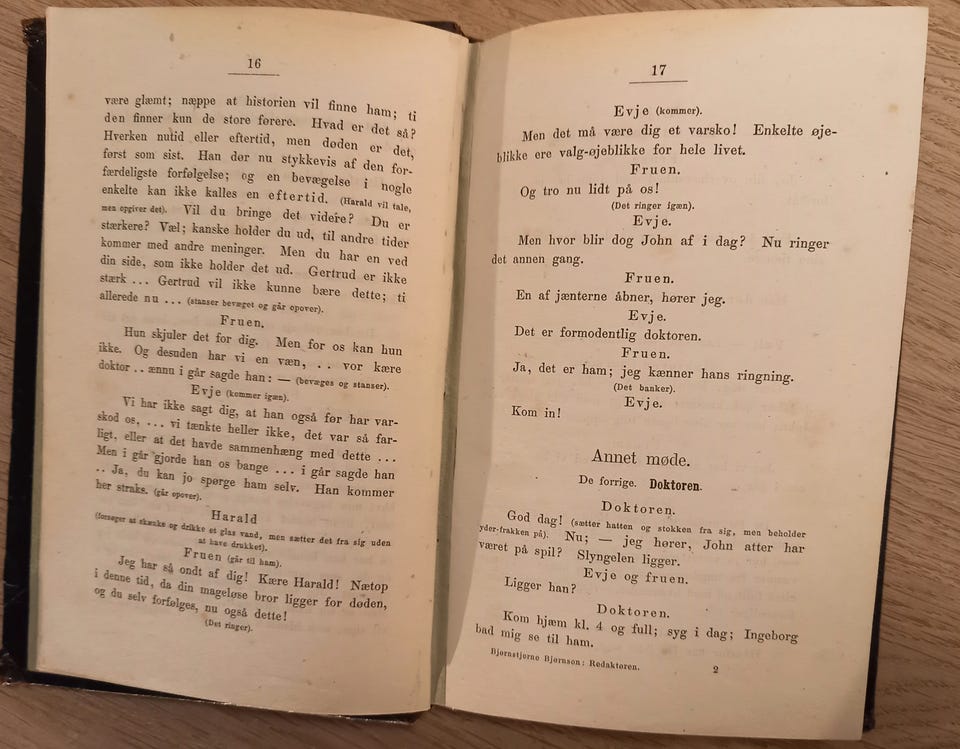 16
være glæmt; næppe at historien vil finne ham; ti
den finner kun de store førere. Hvad er det så?
Hverken nutid eller eftertid, men døden er det,
først som sist. Han dør nu stykkevis af den for-
færdeligste forfølgelse; og en bevægelse i nogle
enkelte kan ikke kalles en eftertid. (Harald vil tale,
men opgiver det). Vil du bringe det videre? Du er
stærkere? Væl; kanske holder du ud, til andre tider
kommer med andre meninger. Men du har en ved
din side, som ikke holder det ud. Gertrud er ikke
stærk ... Gertrud vil ikke kunne bære dette; ti
allerede nu ... (stanser bevæget og går opover).
Fruen.
Hun skjuler det for dig. Men for os kan hun
ikke. Og desuden har vi en væn, .. vor kære
doktor .. ænnu i går sagde han: — (bevæges og stanser).
Evje (kommer igæn).
Vi har ikke sagt dig, at han også før har var-
skod os, ... vi tænkte heller ikke, det var så far-
ligt, eller at det havde sammenhæng med dette ...
Men i går gjorde han os bange ... i går sagde han
.. Ja, du kan jo spørge ham selv. Han kommer
her straks. (går opover).
Harald
(forsøger at skænke og drikke et glas vand, men sætter det fra sig uden
at have drukket).
Fruen (går til ham).
Jeg har så ondt af dig! Kære Harald! Nætop
i denne tid, da din mageløse bror ligger for døden,
og du selv forfølges, nu også dette!
(Det ringer).
17
Evje (kommer).
Men det må være dig et varsko! Enkelte øje-
blikke ere valg-øjeblikke for hele livet.
Fruen.
Og tro nu lidt på os!
(Det ringer igæn).
Evje.
Men hvor blir dog John af i dag? Nu ringer
det annen gang.
Fruen.
En af jænterne åbner, hører jeg.
Evje.
Det er formodentlig doktoren.
Fruen.
Ja, det er ham; jeg kænner hans ringning.
(Det banker).
Evje.
Kom in!
Annet møde.
De forrige. Doktoren.
Doktoren.
God dag! (sætter hatten og stokken fra sig, men beholder
yder-frakken på). Nu; — jeg hører, John atter har
været på spil? Slyngelen ligger.
Evje og fruen.
Ligger han?
Doktoren.
Kom hjæm kl. 4 og full; syg i dag; Ingeborg
bad mig se til ham.
Bjørnstjerne Bjørnson: Redaktøren. 2